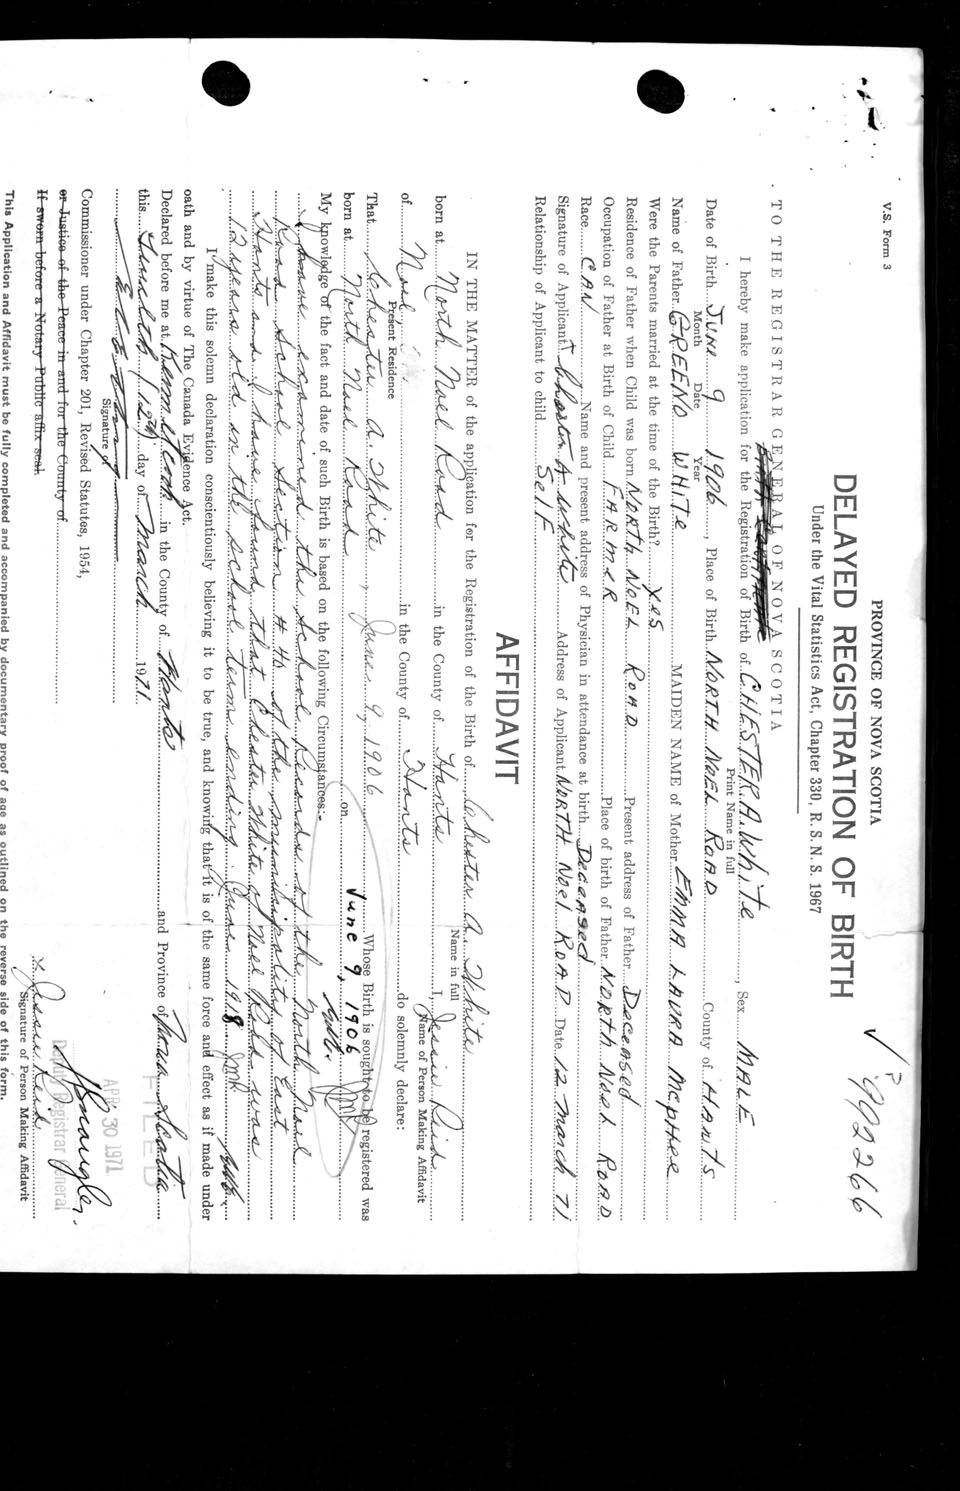 V.S. Form 3
PROVINCE OF NOVA SCOTIA
P 992266
DELAYED REGISTRATION OF BIRTH
Under the Vital Statistics Act, Chapter 330, R. S. N. S. 1967
TO THE REGISTRAR GENERAL OF NOVA SCOTIA
I hereby make application for the Registration of Birth of CHESTER. A. WHITE, Sex MALE
Print Name in full
Date of Birth JUNE 9 1906, Place of Birth NORTH NOEL ROAD County of HANTS
Month Date Year
Name of Father GREENO WHITE MAIDEN NAME of Mother EMMA LAURA McPHEE
Were the Parents married at the time of the Birth? YES
Residence of Father when Child was born NORTH NOEL ROAD Present address of Father Deceased
Occupation of Father at Birth of Child FARMER Place of birth of Father NORTH NOEL ROAD
Race CAN Name and present address of Physician in attendance at birth Deceased
Signature of Applicant Chester A White Address of Applicant NORTH NOEL ROAD Date 12 March 71
Relationship of Applicant to child SELF
AFFIDAVIT
IN THE MATTER of the application for the Registration of the Birth of Chester A. White
Name in full
born at North Noel Road in the County of Hants I, Jessie Reid
Name of Person Making Affidavit
of Noel, in the County of Hants do solemnly declare:
Present Residence
That Chester A. White, June 9, 1906 Whose Birth is sought to be registered was
born at North Noel Road on June 9, 1906
My knowledge of the fact and date of such Birth is based on the following Circumstances:-
I have examined the school Records of the North Noel
Road School Section # 40 of the municipality of East
Hants and I have found that Chester White of Noel Road was
12 years old in the school term ending June 1918
I make this solemn declaration conscientiously believing it to be true, and knowing that it is of the same force and effect as if made under
oath and by virtue of The Canada Evidence Act.
Declared before me at Kennetcook in the County of Hants and Province of Nova Scotia
this Twelth (12th) day of March 1971
Signature of
Commissioner under Chapter 201, Revised Statutes, 1954,
or Justice of the Peace in and for the County of
If sworn before a Notary Public affix seal.
FILED
APR 30 1971
Deputy Registrar General
x Jessie Reid
Signature of Person Making Affidavit
This Application and Affidavit must be fully completed and accompanied by documentary proof of age as outlined on the reverse side of this form.